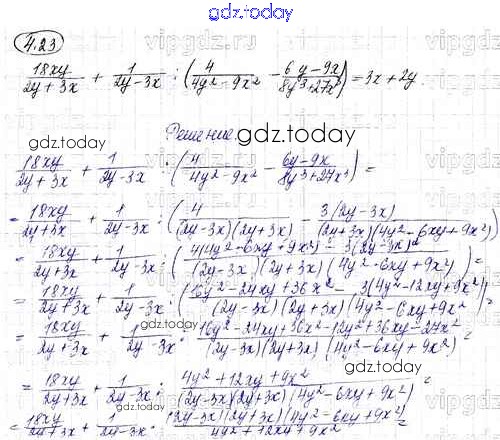 gdz.today
4.23
18xy/(2y+3x) + 1/(2y-3x) : (4/(4y²-9x²) - (6y-9x)/(8y³+27x³)) = 3x+2y
Решение.
gdz.today
18xy/(2y+3x) + 1/(2y-3x) : (4/(4y²-9x²) - (6y-9x)/(8y³+27x³)) =
= 18xy/(2y+3x) + 1/(2y-3x) : (4/((2y-3x)(2y+3x)) - 3(2y-3x)/((2y+3x)(4y²-6xy+9x²))) =
= 18xy/(2y+3x) + 1/(2y-3x) : (4(4y²-6xy+9x²) - 3(2y-3x)²)/((2y-3x)(2y+3x)(4y²-6xy+9x²)) =
= 18xy/(2y+3x) + 1/(2y-3x) : (16y²-24xy+36x² - 3(4y²-12xy+9x²))/((2y-3x)(2y+3x)(4y²-6xy+9x²)) =
= 18xy/(2y+3x) + 1/(2y-3x) : (16y²-24xy+36x²-12y²+36xy-27x²)/((2y-3x)(2y+3x)(4y²-6xy+9x²)) =
= 18xy/(2y+3x) + 1/(2y-3x) : (4y²+12xy+9x²)/((2y-3x)(2y+3x)(4y²-6xy+9x²)) =
= 18xy/(2y+3x) + 1/(2y-3x) · ((2y-3x)(2y+3x)(4y²-6xy+9x²))/(4y²+12xy+9x²) =
gdz.today